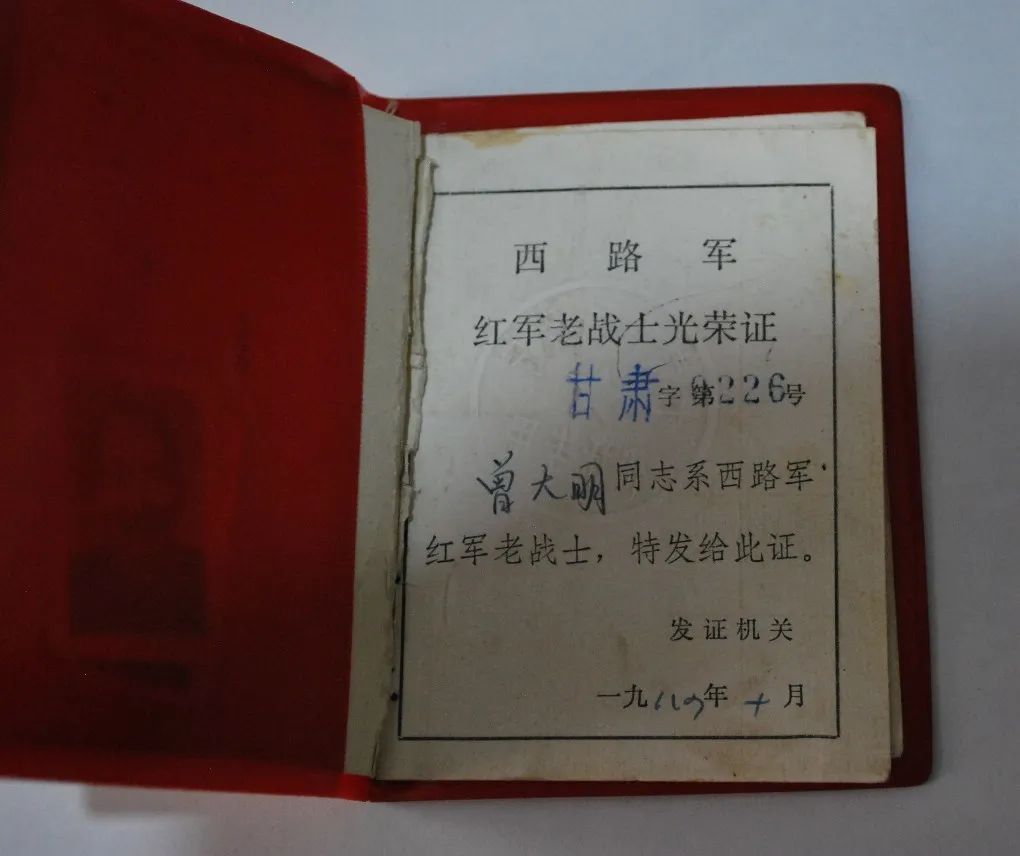 西路军
红军老战士光荣证
甘肃字第0226号
曾大明同志系西路军
红军老战士，特发给此证。
发证机关
一九八四年十月